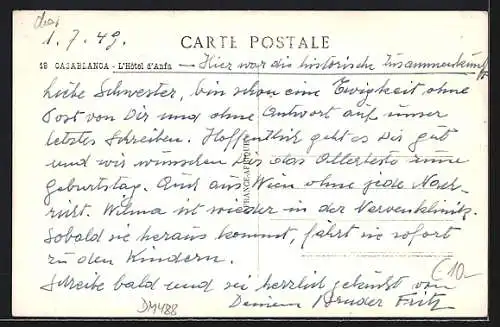 1. 7. 49.
CARTE POSTALE
18 CASABLANCA - L'Hôtel d'Anfa — Hier war die historische Zusammenkunft
Liebe Schwester, bin schon eine Ewigkeit ohne
Post von Dir und ohne Antwort auf unser
letztes Schreiben. Hoffentlich geht es Dir gut
und wir wünschen Dir das Allerbeste zum
Geburtstag. Auch aus Wien ohne jede Nach-
richt. Wilma ist wieder in der Nervenklinik.
Sobald sie heraus kommt, fährt sie sofort
zu den Kindern.
Schreibe bald und sei herzlich geküsst von
Deinem Bruder Fritz
FRANCE-AFRIQUE
€ 10-
DM488